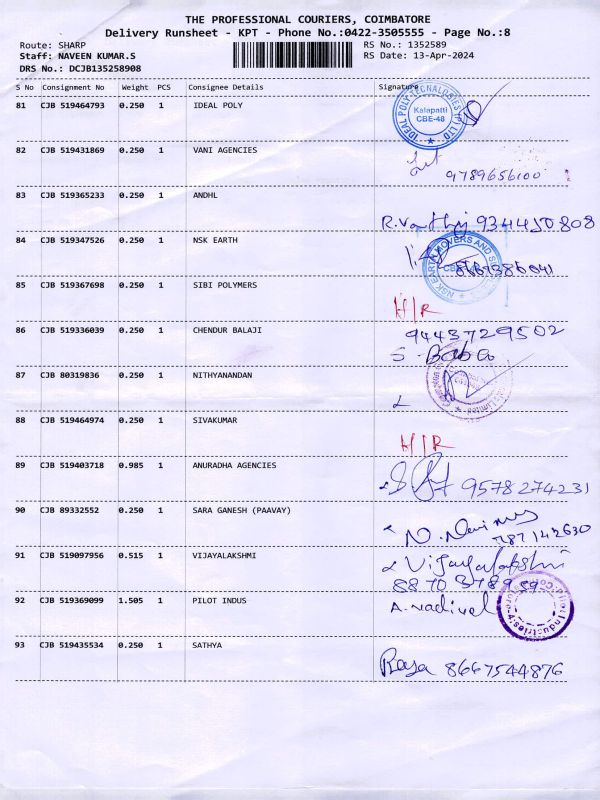 THE PROFESSIONAL COURIERS, COIMBATORE
Delivery Runsheet - KPT - Phone No.:0422-3505555 - Page No.:8
Route: SHARP
Staff: NAVEEN KUMAR.S
DRS No.: DCJB135258908
RS No.: 1352589
RS Date: 13-Apr-2024
S No Consignment No Weight PCS Consignee Details Signature
81 CJB 519464793 0.250 1 IDEAL POLY
Kalapatti
CBE-48
82 CJB 519431869 0.250 1 VANI AGENCIES
9789656100
83 CJB 519365233 0.250 1 ANDHL
84 CJB 519347526 0.250 1 NSK EARTH
85 CJB 519367698 0.250 1 SIBI POLYMERS
H/R
86 CJB 519336039 0.250 1 CHENDUR BALAJI
9443729502
S. Baba
87 CJB 80319836 0.250 1 NITHYANANDAN
88 CJB 519464974 0.250 1 SIVAKUMAR
H/R
89 CJB 519403718 0.985 1 ANURADHA AGENCIES
9578274231
90 CJB 89332552 0.250 1 SARA GANESH (PAAVAY)
91 CJB 519097956 0.515 1 VIJAYALAKSHMI
Vijayalakshmi
92 CJB 519369099 1.505 1 PILOT INDUS
A. Vadivel
93 CJB 519435534 0.250 1 SATHYA
Raja 8667544876